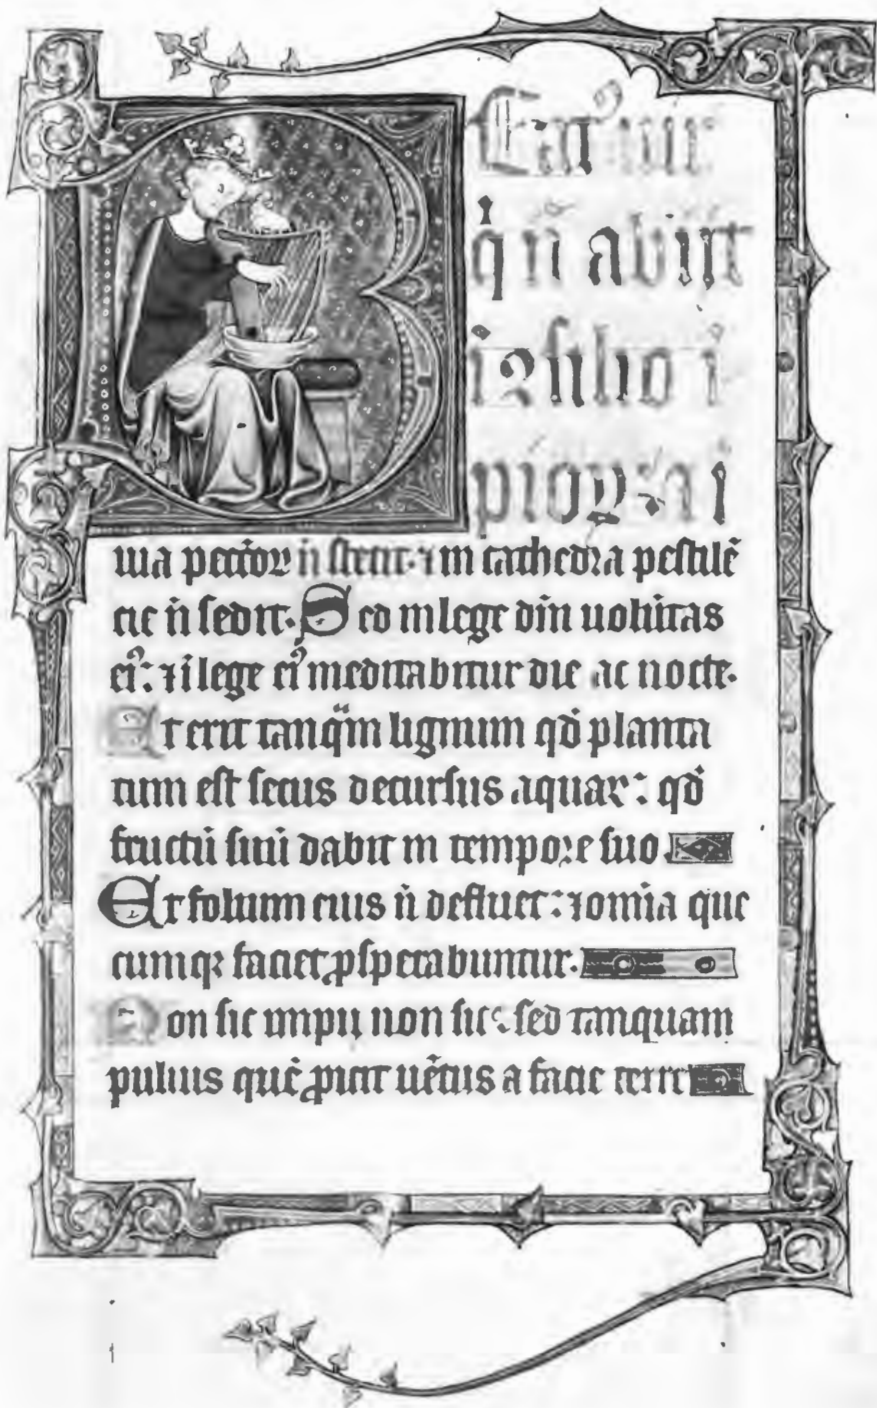 Beat⁹ uir
q̇ n̄ abijt
i ꝯsilio i
pioꝝ ⁊ i
uia pccōꝝ n̄ stetit· ⁊ in cathedra pestilē
cie n̄ sedit· Sed in lege dn̄i uoluntas
ei⁹: ⁊ i lege ei⁹ meditabitur die ac nocte·
Et erit tanq̈m lignum qd̄ planta
tum est secus decursus aquaꝝ: qd̄
fructū suū dabit in tempore suo
Et folium eius n̄ defluet: ⁊ omīa que
cumqꝫ faciet ꝓsperabuntur·
Non sic impij non sic: sed tanquam
puluis quē ꝓicit uētus a facie terre
1